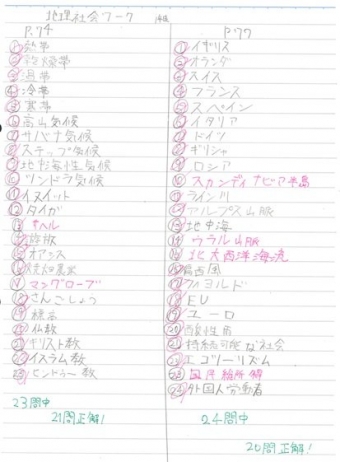 地理社会ワーク
P.74
① 熱帯
② 乾燥帯
③ 温帯
④ 冷帯
⑤ 寒帯
⑥ 高山気候
⑦ サバナ気候
⑧ ステップ気候
⑨ 地中海性気候
⑩ ツンドラ気候
⑪ イヌイット
⑫ タイガ
⑬
⑭ 遊牧
⑮ オアシス
⑯ 焼畑農業
⑰ マングローブ
⑱ さんごしょう
⑲
⑳ 仏教
㉑ キリスト教
㉒ イスラム教
㉓ ヒンドゥー教
23問中
21問正解!
P.77
① イギリス
② オランダ
③ スイス
④ フランス
⑤ スペイン
⑥ イタリア
⑦ ドイツ
⑧ ギリシャ
⑨ ロシア
⑩ スカンディナビア半島
⑪ ライン川
⑫ アルプス山脈
⑬ 地中海
⑭ ウラル山脈
⑮ 北大西洋海流
⑯ 偏西風
⑰ フィヨルド
⑱ EU
⑲ ユーロ
⑳ 酸性雨
㉑ 持続可能な社会
㉒ エコツーリズム
㉓ 国民総所得
㉔ 外国人労働者
24問中
20問正解!